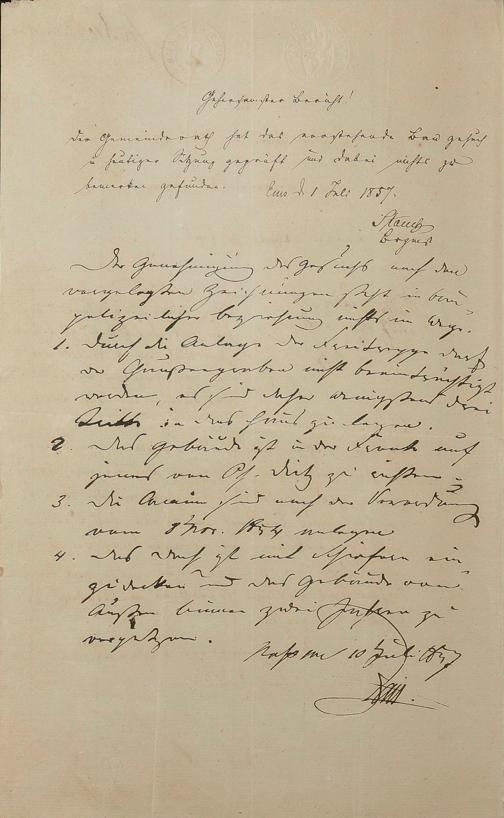 Gehorsamster Bericht!
Der Gemeinderath hat das vorstehende Bau gesuch
in heutiger Sitzung geprüft und dabei nichts zu
bemerken gefunden. Ems d. 1 Juli 1857.
Der Genehmigung des Gesuchs nach den
vorgelegten Zeichnungen steht in bau
polizeilicher Beziehung nichts im Wege.
1. Durch die Anlage der Freitreppe darf
der Chausseegraben nicht beeinträchtigt
werden, es sind daher wenigstens drei
Tritte in das Haus zu legen.
2. Das Gebäude ist in der Fronte auf
jenes von Ph. Dietz zu richten
3. Die Kamine sind nach der Verordnung
vom 8 Nov. 1854 anlegen
4. das Dach ist mit Schiefern ein
zudecken und das Gebäude von
Außen binnen zwei Jahren zu
verputzen.
Nassau 10 Juli 1857